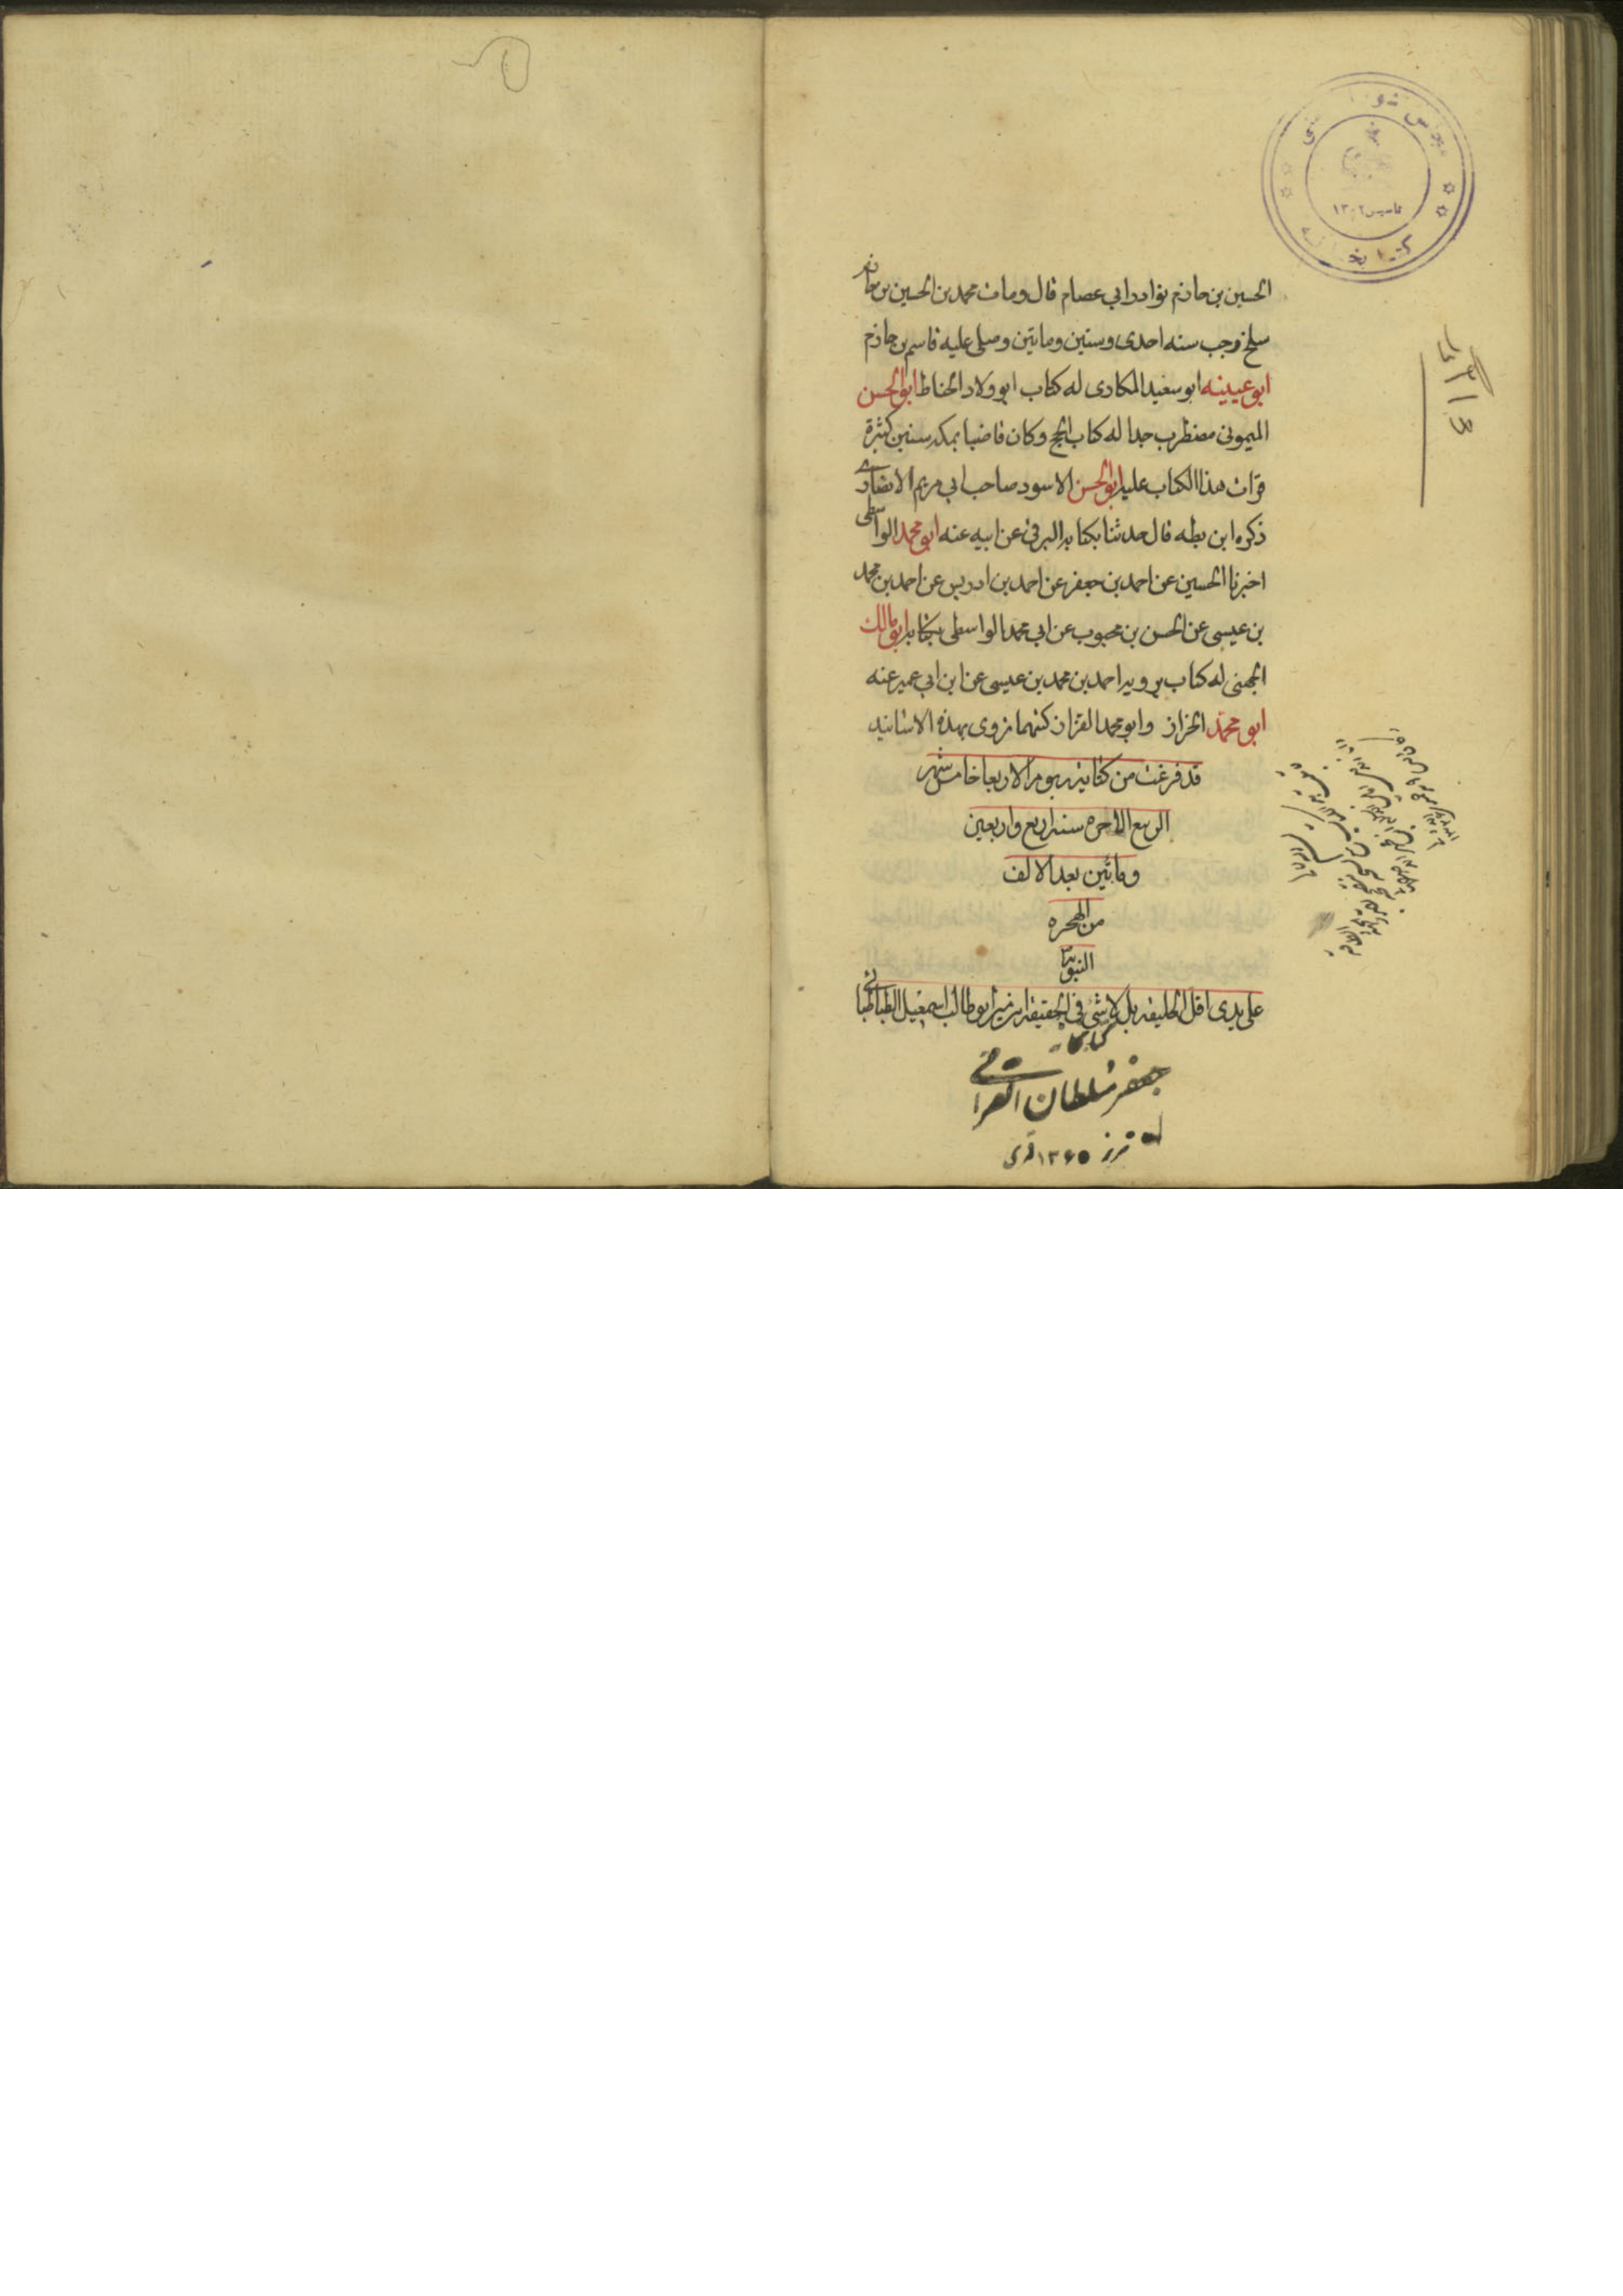 الحسين بن حازم نوادر ابي عصام قال ومات محمد بن الحسين بن حازم
سلخ رجب سنه احدى وستين ومايتين وصلى عليه قاسم بن حازم
ابو عيينه ابو سعيد المكارى له كتاب ابو ولاد الحناط ابو الحسن
الميمونى مضطرب جدا له كتاب الحج وكان قاضيا بمكه سنين كثيرة
قرات هذا الكتاب عليه ابو الحسن الاسود صاحب ابي مريم الانصارى
ذكره ابن بطه قال حدثنا بكتابه البرقى عن ابيه عنه ابو محمد الواسطى
اخبرنا الحسين عن احمد بن جعفر عن احمد بن ادريس عن احمد بن محمد
بن عيسى عن الحسن بن محبوب عن ابي محمد الواسطى بكتابه ابو مالك
الجهنى له كتاب يرويه احمد بن محمد بن عيسى عن ابن ابي عمير عنه
ابو محمد الخزاز وابو محمد القزاز كتبهما تروى بهذه الاسانيد
قد فرغت من كتابته يوم الاربعا خامس شهر
الربيع الاخره سنه اربع واربعين
وماتين بعد الالف
من الهجره
النبويه
على يدى اقل الخليقه بل لا شئ فى الحقيقه ابو طالب اسمعيل الطباطبائى
كتابخانه
جعفر سلطان القرائى
۱۳۶۵ قمرى
تاسيس ۱۳۰۲